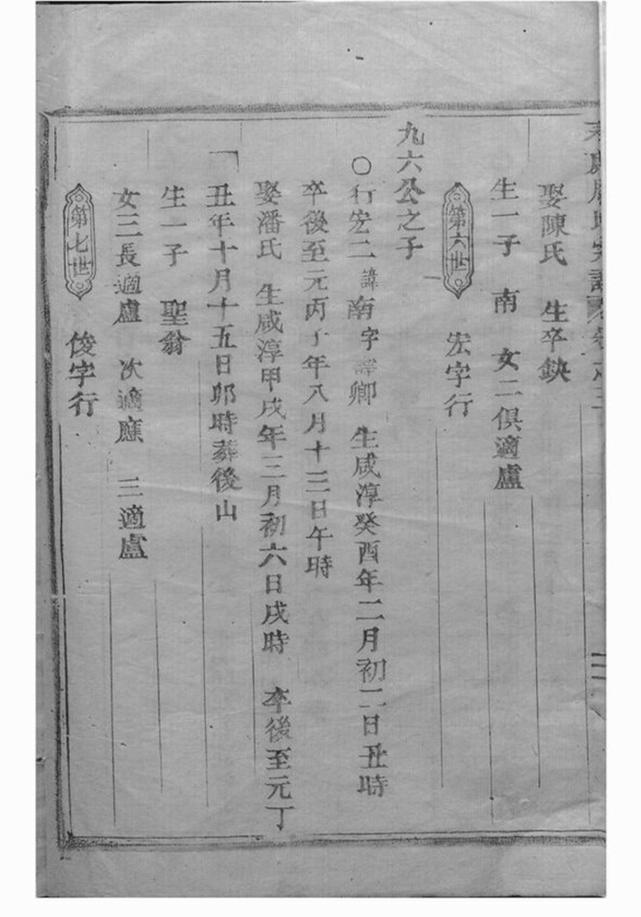 周氏宗譜卷之三
娶陳氏　生卒缺
生一子　南　女二俱適盧
第六世　宏字行
九六公之子
○行宏二　諱南　字壽卿　生咸淳癸酉年二月初二日丑時
卒後至元丙子年八月十三日午時
娶潘氏　生咸淳甲戌年三月初六日戌時　卒後至元丁
丑年十月十五日卯時葬後山
生一子　聖翁
女三長適盧　次適應　三適盧
第七世　俊字行